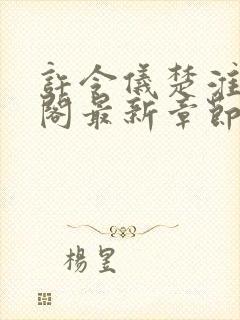 許令儀楚淮
閣最新章節
楊昱